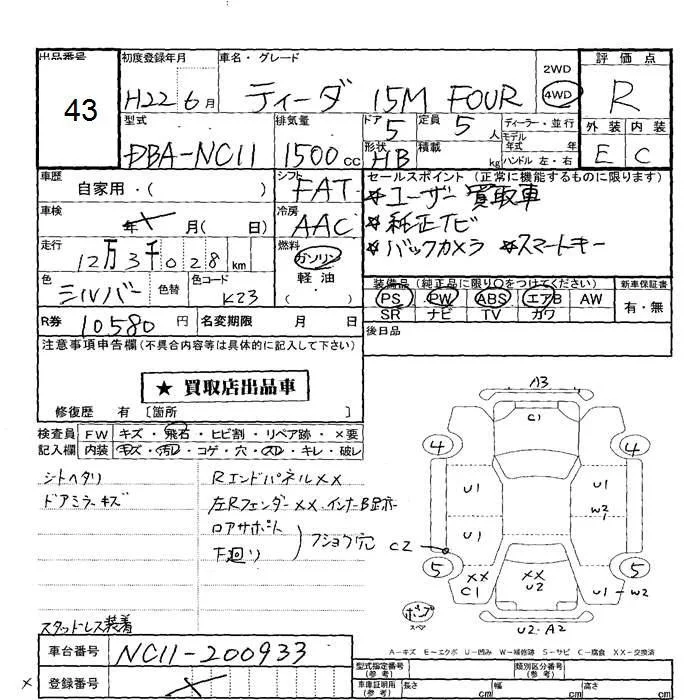 出品番号
43
初度登録年月
H22 6月
車名・グレード
ティーダ 15M FOUR
2WD
4WD
評価点
R
外装 内装
E C
型式
DBA-NC11
排気量
1500cc
ドア
5
形状
HB
定員
5人
積載
kg
ディーラー・並行
モデル
年式 年
ハンドル 左・右
車歴
自家用・( )
シフト
FAT
セールスポイント (正常に機能するものに限ります)
*ユーザー買取車
*純正ナビ
*バックカメラ *スマートキー
車検
年 月( 日)
冷房
AAC
走行
12万3千028km
燃料
ガソリン
軽油・
( )
色
シルバー
色替
色コード
K23
装備品(純正品に限り○をつけてください)
PS PW ABS エアB AW
SR ナビ TV カワ
新車保証書
有・無
R券
10580円
名変期限 月 日
後日品
注意事項申告欄(不具合内容等は具体的に記入して下さい)
★ 買取店出品車
修復歴 有 〔箇所 〕
検査員 FW キズ・飛石・ヒビ割・リペア跡・×要
記入欄 内装 キズ・汚レ・コゲ・穴・スレ・キレ・破レ
シートヘタリ
ドアミラーキズ
Rエンドパネル××
左Rフェンダー××.インナーB
ロアサポート
下廻り
フショク穴
スタッドレス装着
A3
C1
4 4
U1 U1
W2
U1 U1
C2
5 5
××
C1
××
U2
U1-W2
ポンプ
スペア
U2-A2
A-キズ E-エクボ U-凹み W-補修跡 S-サビ C-腐食 XX-交換済
車台番号
NC11-200933
登録番号
型式指定番号
(参考)
類別区分番号
(参考)
車庫証明用
(参考)
長さ cm 幅 cm 高さ cm